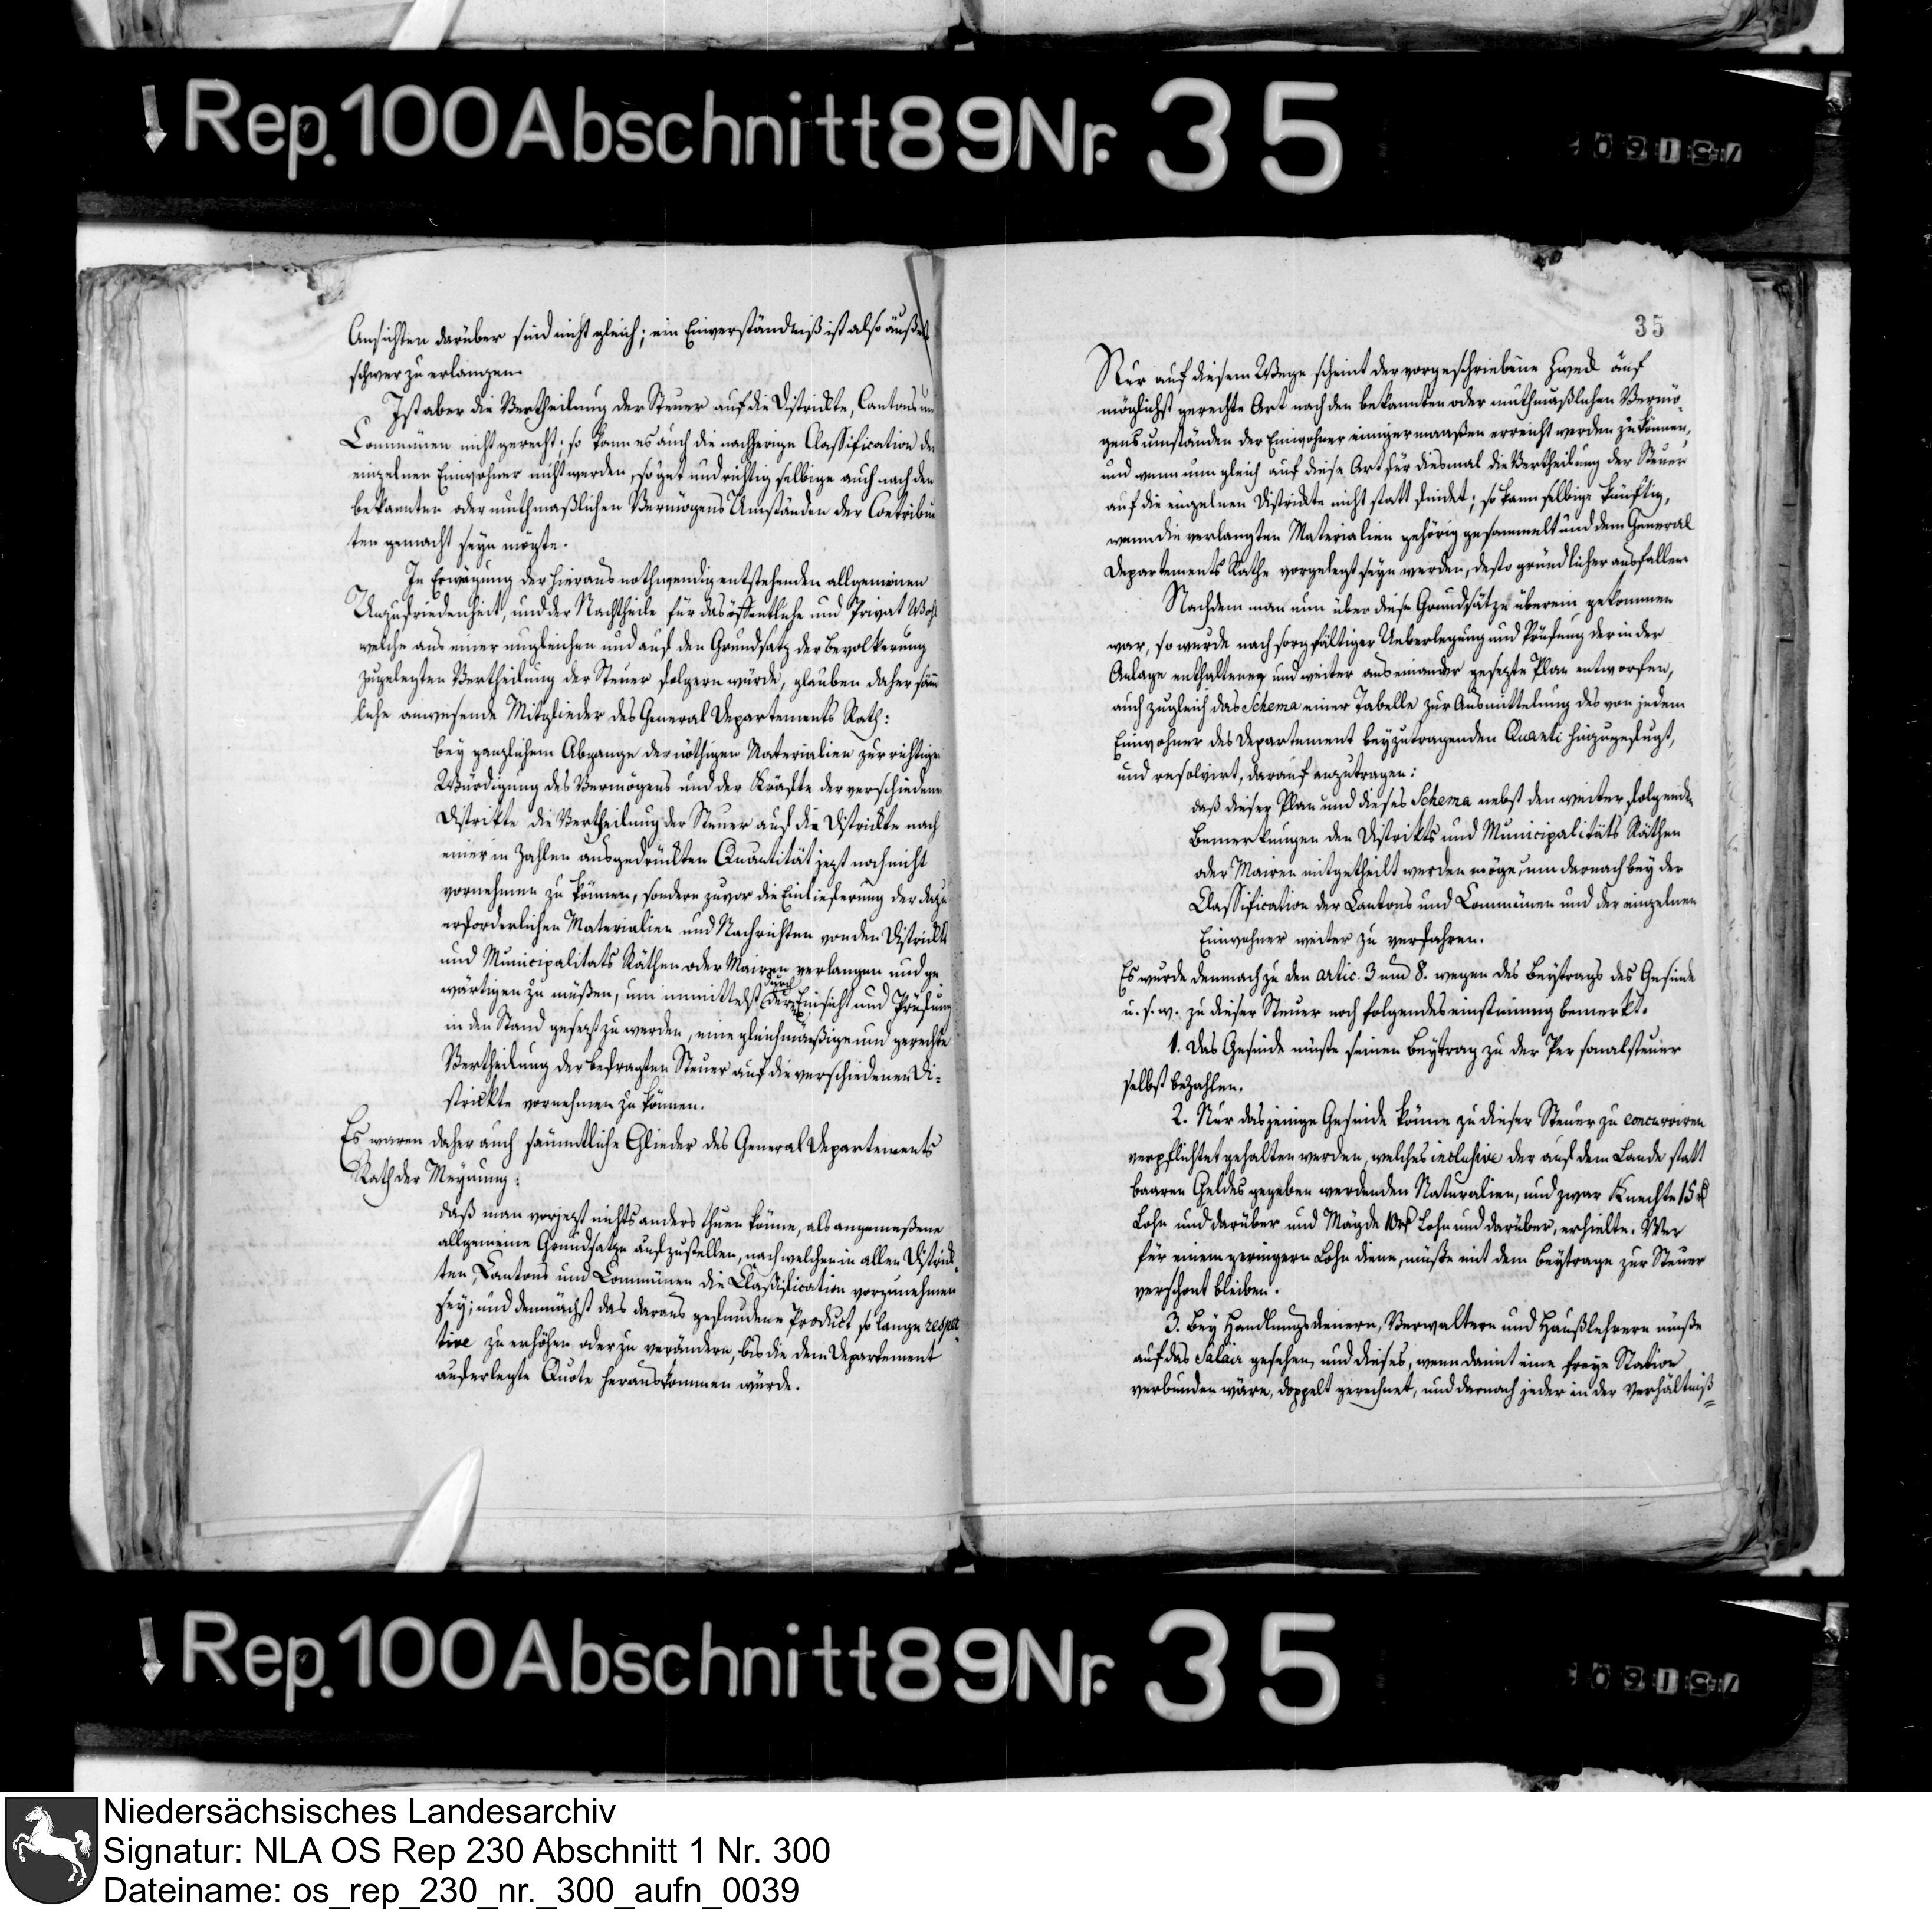 Rep. 100 Abschnitt 89 Nr. 35
Ansichten darüber sind nicht gleich; ein Einverständniß ist also äußerst
schwer zu erlangen.
Ist aber die Vertheilung der Steuer auf die Districkte, Cantons un
Communen nicht gerecht; so kann es auch die nachherige Classification der
einzelnen Einwohner nicht werden, so gut und richtig selbige auch nach den
bekannten oder muthmaßlichen Vermögens Umständen der Contribuen
ten gemacht seyn mögte.
In Erwägung der hieraus nothwendig entstehenden allgemeinen
Unzufriedenheit, und der Nachtheile für das öffentliche und Privat Wohl
welche aus einer ungleichen und auf den Grundsatz der Bevolkerung
zugelegten Vertheilung der Steuer folgern würde, glauben daher säm
liche anwesende Mitglieder des General Departements Rath:
bey ganzlichem Abgange der nöthigen Materialien zur richtigen
Würdigung des Vermögens und der Kräfte der verschiedenen
Distrikte die Vertheilung der Steuer auf die Districkte nach
einer in Zahlen ausgedrückten Quantität jezt noch nicht
vornehmen zu können, sondern zuvor die Einlieferung der dazu
erforderlichen Materialien und Nachrichten von den Districkts
und Municipalitats Räthen oder Mairen verlangen und ge
wärtigen zu müßen, um inmittelst durch deren Einsicht und Prüfung
in den Stand gesezt zu werden, eine gleichmäßige und gerechte
Vertheilung der befragten Steuer auf die verschiedenen Di-
strickte vornehmen zu können.
Es waren daher auch sämmtliche Glieder des General Departements
Rath der Meynung:
daß man vorjezt nichts anders thuen könne, als angemeßene
allgemeine Grundsatze aufzustellen, nach welchen in allen Districk
ten, Cantons und Communen die Classification vorzunehmen
sey; und demnächst das daraus gefundene Product so lange respec
tive zu erhöhen oder zu verändern, bis die dem Departement
auferlegte Quote herauskommen würde.
35
Nur auf diesem Wege scheint der vorgeschriebene Zweck auf
möglichst gerechte Art nach den bekannten oder muthmaßlichen Vermö-
gens umständen der Einwohner einigermaaßen erreicht werden zu können,
und wenn nun gleich auf diese Art für diesmal die Vertheilung der Steuer
auf die einzelnen Distrikte nicht statt findet; so kann selbige künftig,
wenn die verlangten Materialien gehörig gesammelt und dem General
Departements Rathe vorgelegt seyn werden, desto gründlicher ausfallen.
Nachdem man nun über diese Grundsätze überein gekommen
war, so wurde nach sorgfältiger Ueberlegung und Prüfung der in der
Anlage enthaltene und weiter auseinander gesezte Plan entworfen,
auch zugleich das Schema einer Tabelle zur Ausmittelung des von jedem
Einwohner des Departement beyzutragenden Quanti hinzugefügt,
und resolvirt, darauf anzutragen:
daß dieser Plan und dieses Schema nebst den weiter folgenden
Bemerkungen den Distrikts und Municipalitäts Räthen
oder Mairen mitgetheilt werden möge, um darnach bey der
Classification der Cantons und Communen und der einzelnen
Einwohner weiter zu verfahren.
Es wurde demnach zu den artic. 3 und 8. wegen des Beytrags des Gesinde
u. s. w. zu dieser Steuer noch folgendes einstimmig bemerkt.
1. Das Gesinde müste seinen Beytrag zu der Personalsteuer
selbst bezahlen.
2. Nur dasjenige Gesinde könne zu dieser Steuer zu concurriren
verpflichtet gehalten werden, welches inclusive der auf dem Lande statt
baaren Geldes gegeben werdenden Naturalien, und zwar Knechte 15 rt
Lohn und darüber und Mägde 10 rt Lohn und darüber, erhielte. Wer
für einem geringern Lohn diene, müßte mit dem Beytrage zur Steuer
verschont bleiben.
3. Bey Handlungsdienern, Verwaltern und Haußlehrern müße
auf das Salair gesehen, und dieses, wenn damit eine freye Station
verbunden wäre, doppelt gerechnet, und darnach jeder in der Verhältniß
Rep. 100 Abschnitt 89 Nr. 35
Niedersächsisches Landesarchiv
Signatur: NLA OS Rep 230 Abschnitt 1 Nr. 300
Dateiname: os_rep_230_nr._300_aufn_0039